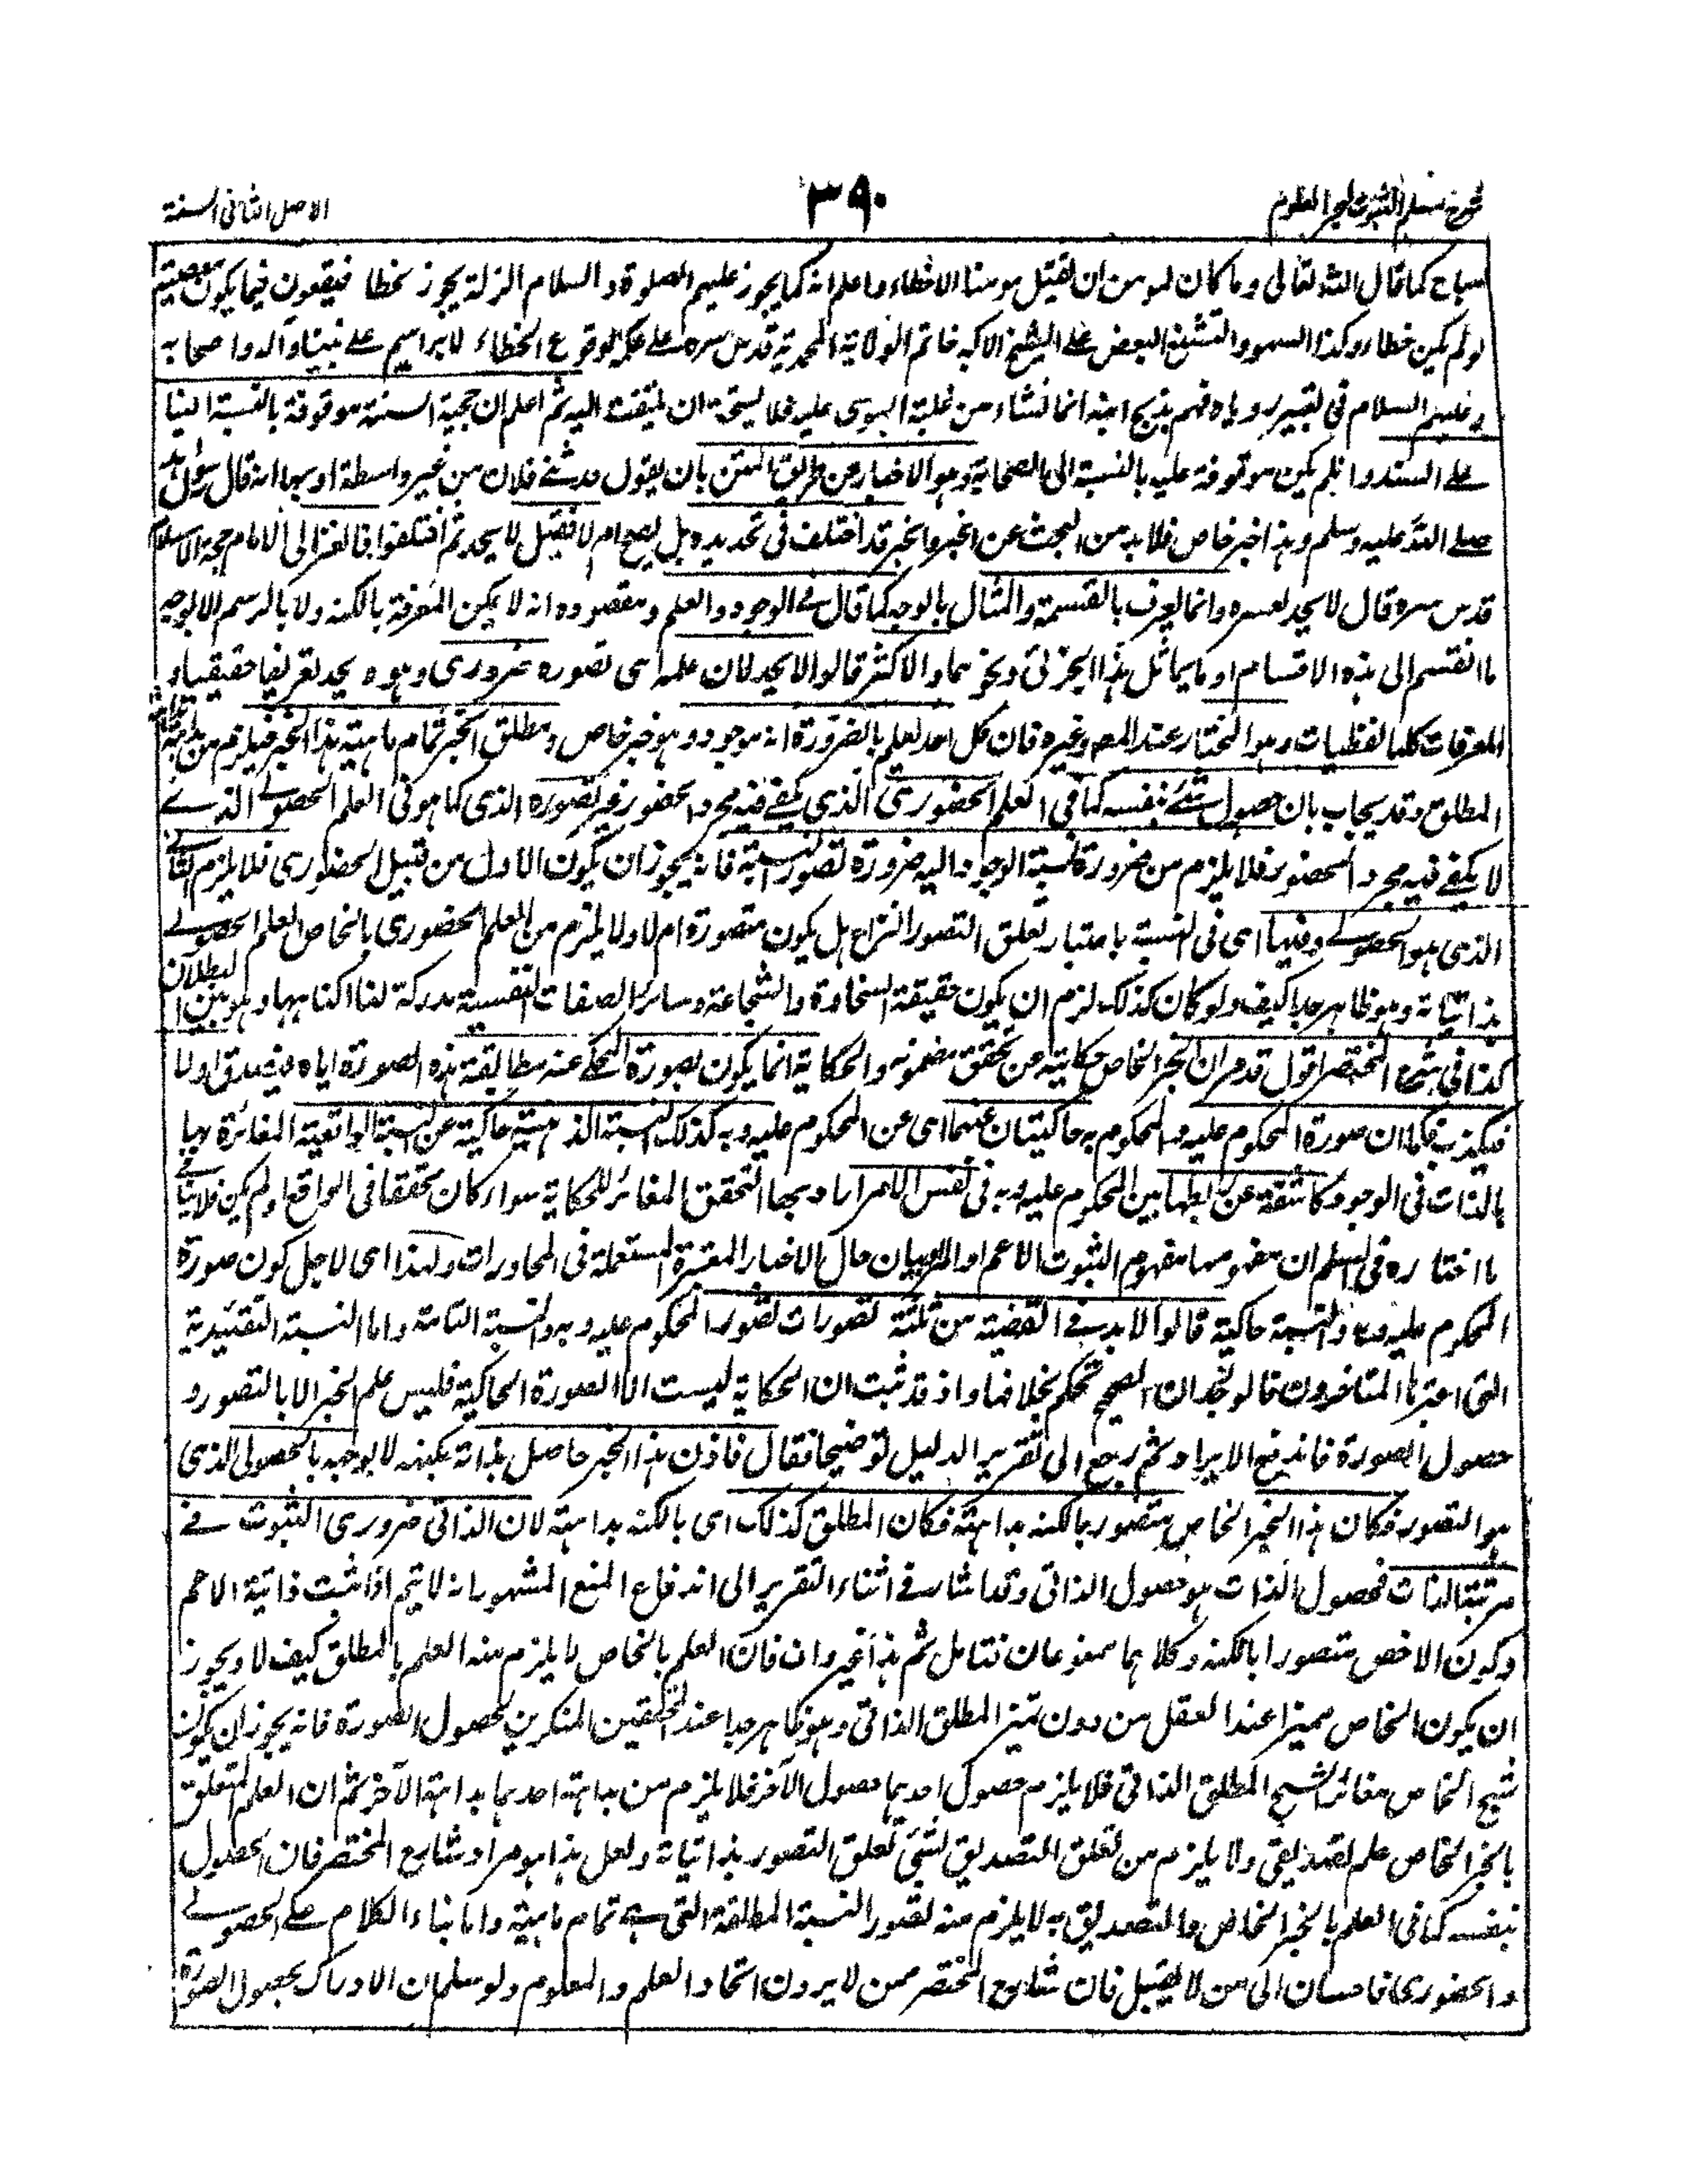 شرح مسلم الثبوت لبحر العلوم
٣٩٠
الاصل الثانى السنة
مباح كما قال الله تعالى وما كان لمومن ان يقتل مومنا الا خطاء واعلم انه كما يجوز عليهم الصلوة والسلام الزلة يجوز خطا فيقعون فيما يكون معصية
لو لم يكن خطاء وكذا السهو والتشنيع البعض على الشيخ الاكبر خاتم الولاية المحمدية قدس سره على حكمه لوقوع الخطاء لابراهيم على نبينا وآله واصحابه
وعليه السلام فى تعبير روياه فهم بذبح ابنه انما نشاء من غلبة الهوى عليه فلا يستحق ان يلتفت اليه ثم اعلم ان حجية السنة موقوفة بالنسبة الينا
على السند وان لم يكن موقوفة عليه بالنسبة الى الصحابة وهو الاخبار عن طريق المتن بان يقول حدثنے فلان من غير واسطة او بها انه قال رسول الله
صلے الله عليه وسلم وهذا خبر خاص فلابد من البحث عن الخبر والخبر قد اختلف فى تحديده هل يصح ام لا فقيل لا يحد ثم اختلفوا فالغزالى الامام حجة الاسلام
قدس سره قال لا يحد لعسره وانما يعرف بالقسمة والمثال بالوجه كما قال فے الوجود والعلم ومقصوده انه لا يمكن المعرفة بالكنه ولا بالرسم الا بوجه
ما انقسم الى هذه الاقسام او ما يماثل هذا الجزئى ونحوهما والاكثر قالوا لا يحد لان علمه اى تصوره ضرورى و يحد تعريفا حقيقيا و
المعرفات كلها لفظيات وهو المختار عند المصـ وغيره فان كل احد يعلم بالضرورة انه موجود وهو خبر خاص ومطلق الخبر تمام ماهية هذا الخبر فيلزم من
المطلق وقد يجاب بان حصول شئے بنفسه كما فى العلم الحضورى الذى يكفے فيه مجرد الحضور غير تصوره الذى كما هو فى العلم الحصولے الذے
لا يكفے فيه مجرد الحضور فلا يلزم من ضرورة نسبة الوجود اليه ضرورة تصور النسبة فانه يجوز ان يكون الاول من قبيل الحضورى فلا يلزم الثانے
الذى هو الحصولے وفيها اى فى النسبة باعتبار تعلق التصور النزاع هل يكون متصورة ام لا ولا يلزم من العلم الحضورى بالخاص العلم الحصولے
بذاتياته وهو ظاهر جدا كيف ولو كان كذلك لزم ان يكون حقيقة السخاوة والشجاعة وسائر الصفات النفسية مدركة لنا اكناهها وهو بين البطلان
كذا فى شرح المختصر اقول قد مر ان الخبر الخاص حكاية عن تحقق مضمونه والحكاية انما يكون بصورة المحكے عنه مطابقة هذه الصورة اياه فيصدق اولا
فيكذب فكما ان صورة المحكوم عليه والمحكوم به حاكيتان عنهما اى عن المحكوم عليه وبه كذلك النسبة الذهنية حاكية عن النسبة الواقعية المغائرة بها
بالذات فى الوجود كاشفة عن ربطها بين المحكوم عليه وبه فى نفس الامر اراد بهما التحقق المغائر للحكاية سواء كان محققا فى الواقع او لم يكن فلا ينافے
ما اختاره فى السلم ان مفهومها مفهوم الثبوت الاعم او المراد بيان حال الاخبار المعتبرة المستعملة فى المحاورات ولهذا اى لاجل كون صورة
المحكوم عليه وبه والنسبة حاكية قالوا لابد فے القضية من ثلثة تصورات تصور المحكوم عليه وبه والنسبة التامة واما النسبة التقييدية
التى اعتبرها المتاخرون فالوجدان الصحيح تحكم بخلافها واذ قد ثبت ان الحكاية ليست الا الصورة الحاكية فليس علم الخبر الا بالتصور و
حصول الصورة فاندفع الايراد ثم رجع الى تقرير الدليل توضيحا فقال فاذن هذا الخبر حاصل بذاته بكنهه لا بوجهه بالحصولى الذى
هو التصور فكان هذا الخبر الخاص متصور بالكنه بداهة فكان المطلق كذلك اى بالكنه بداهته لان الذاتى ضرورى الثبوت فے
مرتبة الذات فحصول الذات هو حصول الذاتى وقد اشار فے اثناء التقرير الى اندفاع المنع المشهور انه لا يتم اذا ثبت ذاتية الاعم
وكون الاخص متصورا بالكنه وكلاهما ممنوعان فتامل ثم هذا غير وان فان العلم بالخاص لا يلزم منه العلم بالمطلق كيف لا ويجوز
ان يكون الخاص مميزا عند العقل من دون تميز المطلق الذاتى وهو ظاهر جدا عند المحققين المنكرين لحصول الصورة فانه يجوز ان يكون
شبح الخاص مغائر الشبح المطلق الذاتى فلا يلزم حصول احدهما حصول الآخر فلا يلزم من بداهة احدهما بداهة الآخر ثم ان العلم المتعلق
بالخبر الخاص علم تصديقى ولا يلزم من تعلق التصديق لشئى تعلق التصور بذاتياته ولعل هذا هو مراد شارح المختصر فان الحصول
بنفسه كما فى العلم بالخبر الخاص والتصديق به لا يلزم منه تصور النسبة المطلقة التى هے تمام ماهيته واما بناء الكلام على الحصولے
والحضورى فاحسان الى من لا يقبل فان شارح المختصر ممن لا يرون اتحاد العلم والمعلوم ولو سلم ان الادراك بحصول الصورة